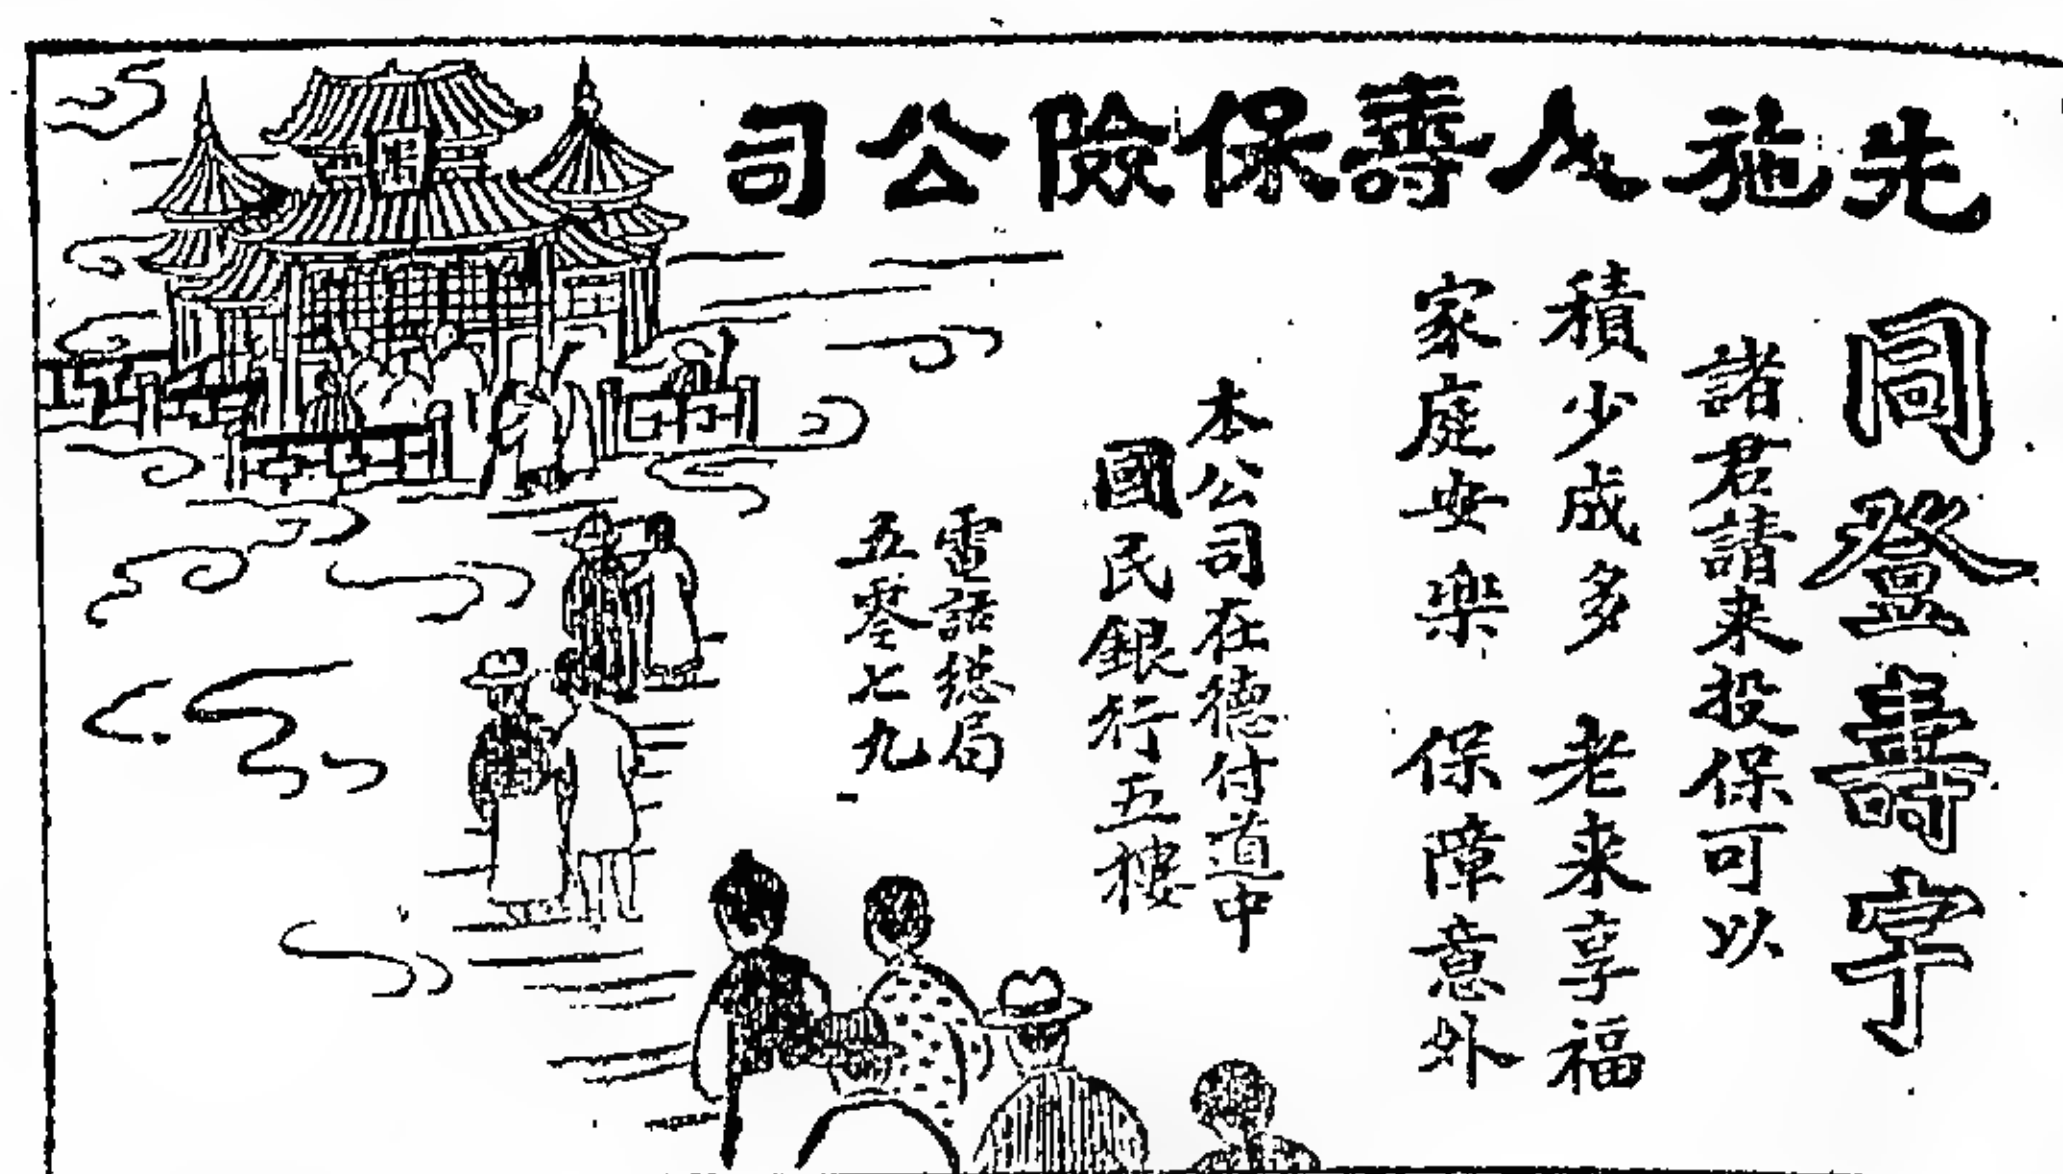 先施人壽保險公司
同登壽字
諸君請来投保可以
積少成多 老来享福
家庭安楽 保障意外
本公司在德付道中
國民銀行五樓
電話総局
五零七九